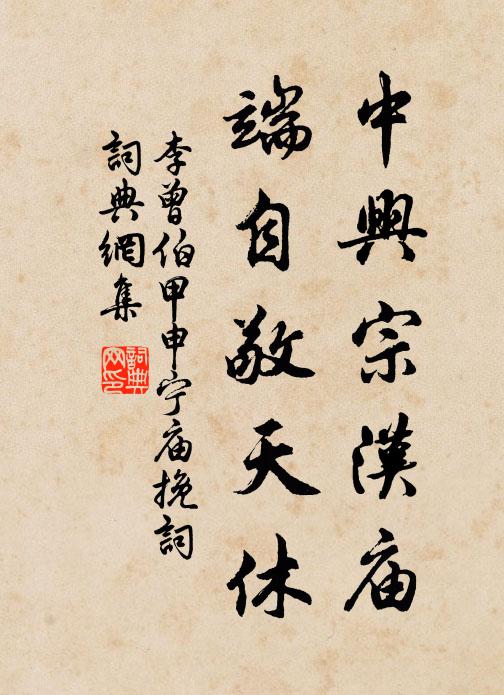 中興宗漢庙
端自敬天休
李曾伯甲申宁庙挽詞
詞典網集
詞典网印